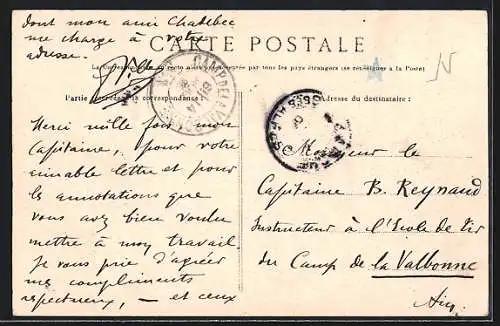 dont mon ami Chadebec
me charge à votre
adresse.
CARTE POSTALE
tous les pays étrangers (se renseigner à la Poste)
Partie la correspondance
Adresse du destinataire :
CAMP DE LA VALBONNE
Merci mille fois mon
Capitaine, pour votre
aimable lettre et pour
les annotations que
vous avez bien voulu
mettre à mon travail.
Je vous prie d'agréer
mes compliments
respectueux, — et ceux
Monsieur le
Capitaine B. Reynaud
Instructeur à l'Ecole de Tir
du Camp de la Valbonne
Ain.